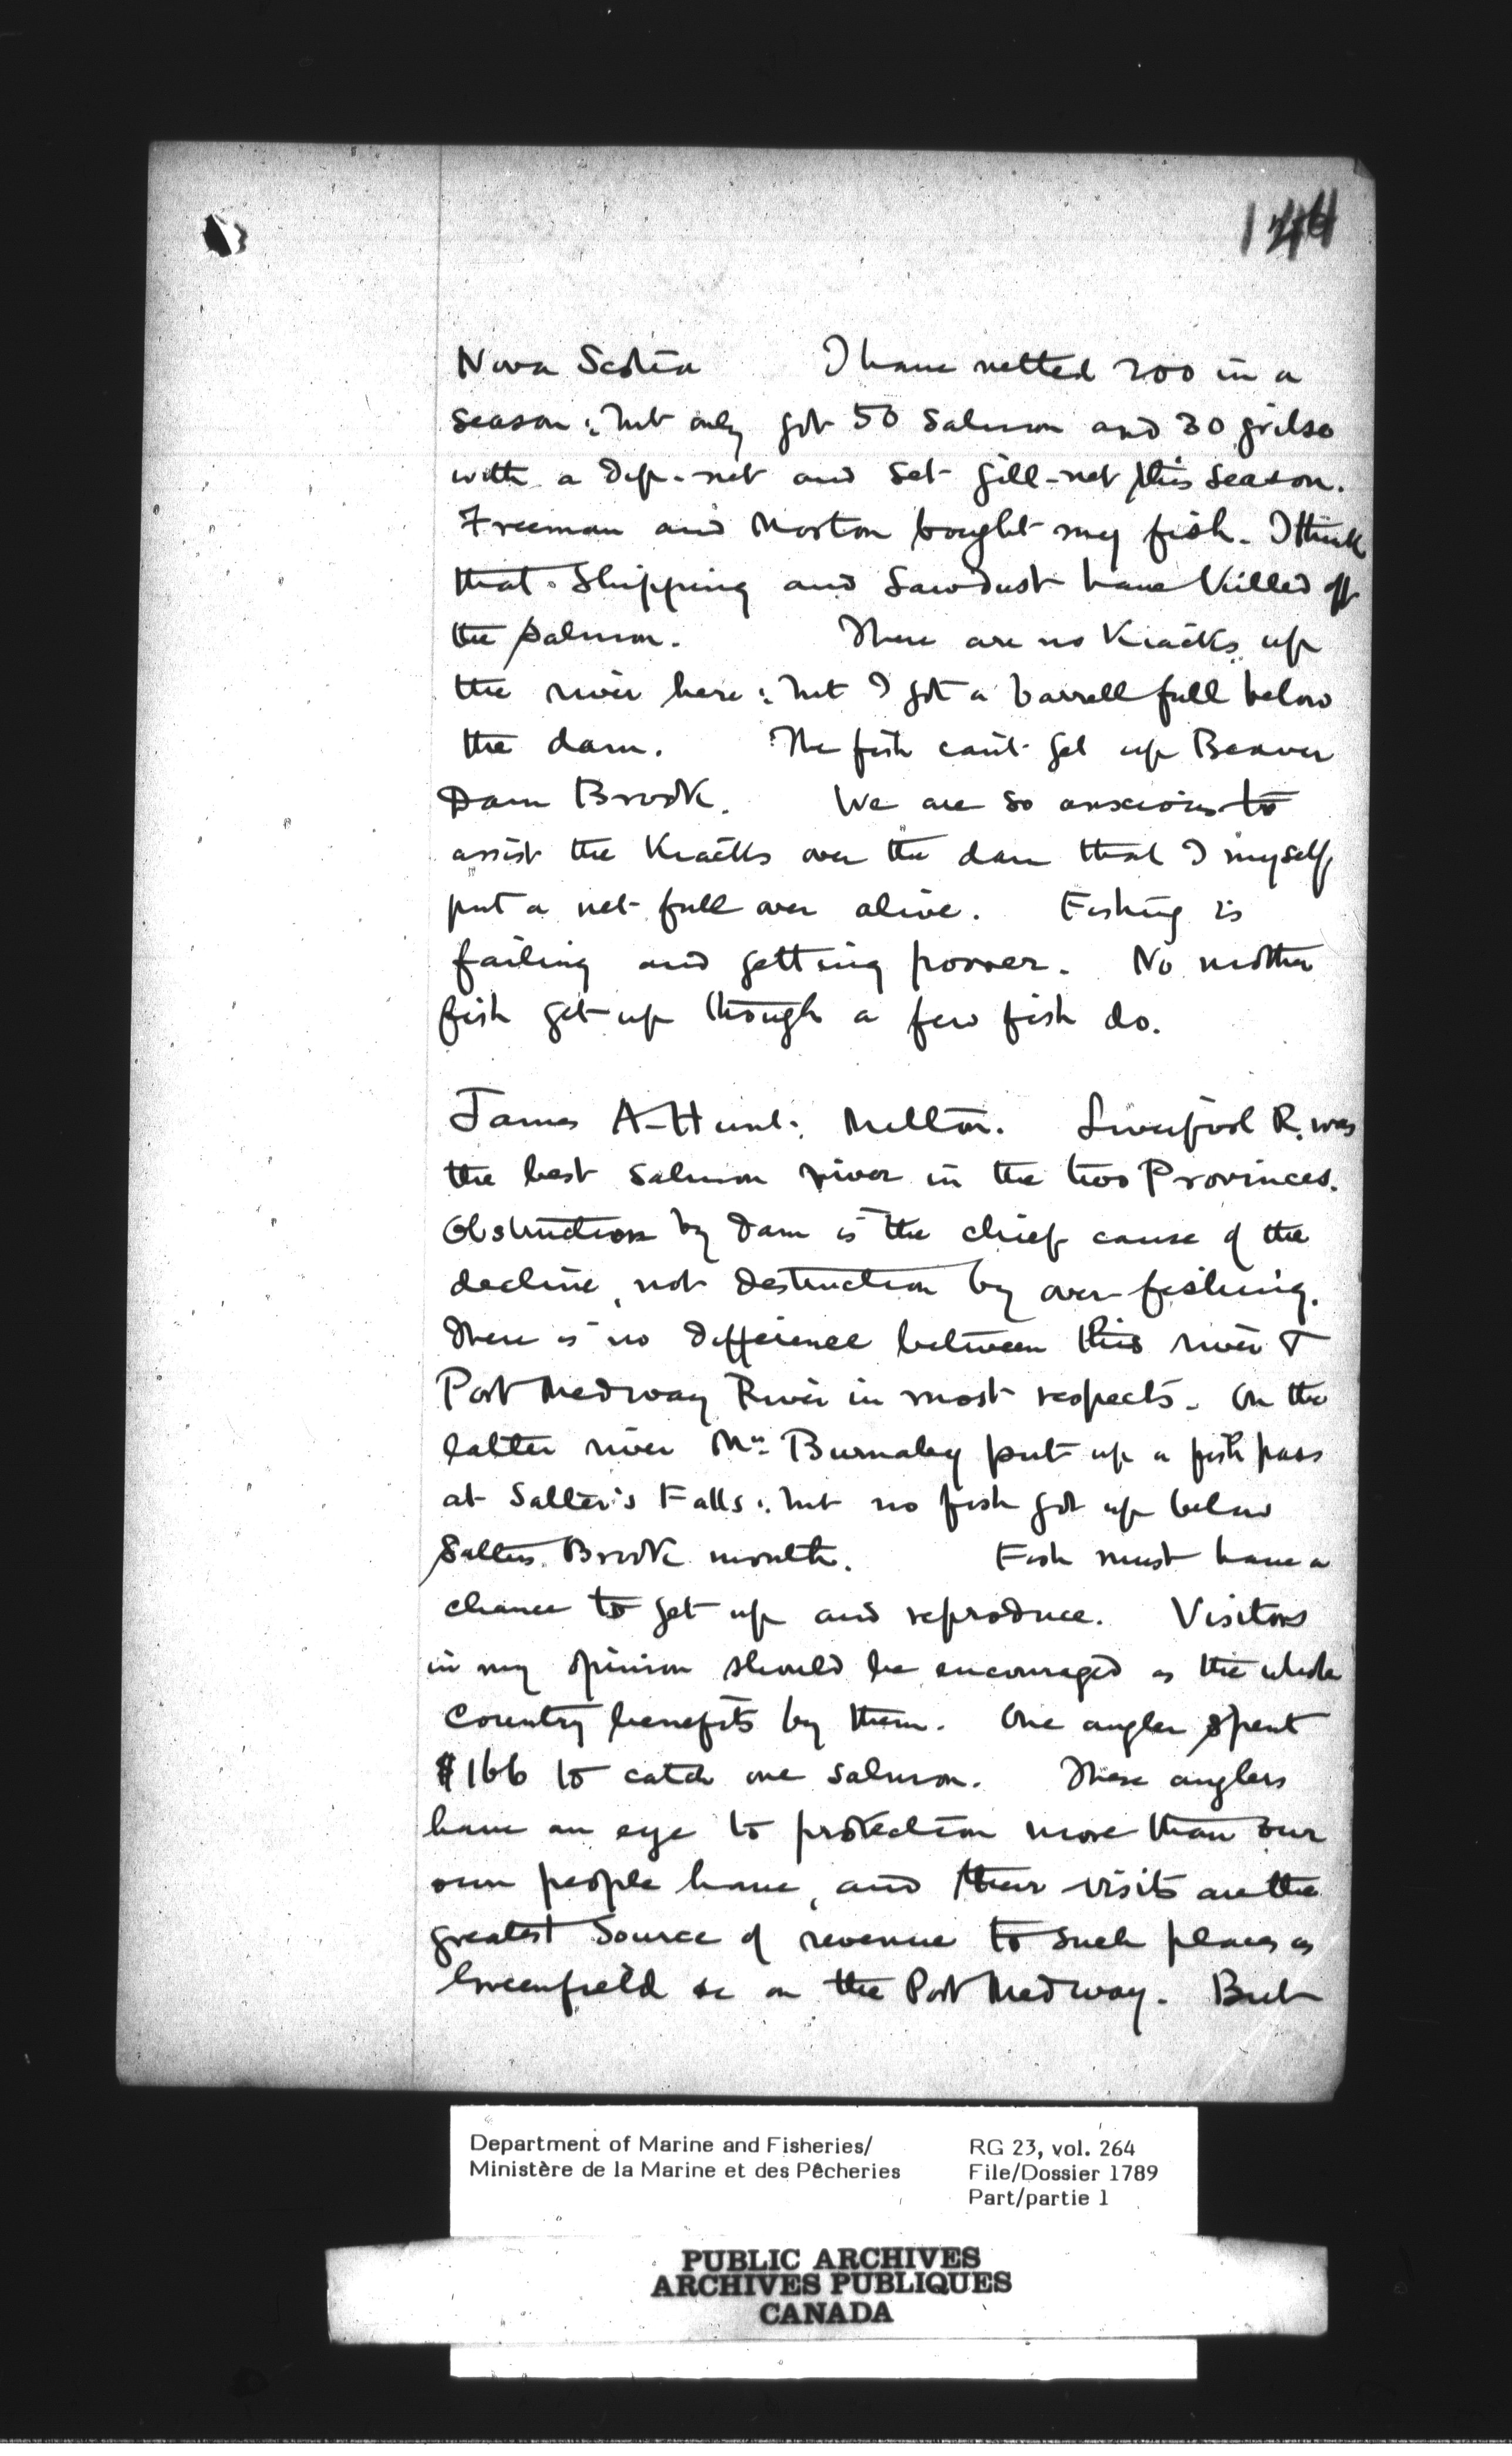 Nova Scotia I have netted 200 in a
season: but only got 50 Salmon and 30 grilse
with a dip-net and set gill-net this season.
Freeman and Morton bought my fish. I think
that Shipping and Sawdust have killed off
the salmon. There are no Kiacks up
the river here: but I got a barrell full below
the dam. The fish can't get up Beaver
Dam Brook. We are so anxious to
assist the Kiacks over the dam that I myself
put a net full over alive. Fishing is
failing and getting poorer. No mother
fish get up though a few fish do.
James A. Hunt: Milton. Liverpool R. was
the best Salmon river in the two Provinces.
Obstruction by dam is the chief cause of the
decline, not destruction by over-fishing.
There is no difference between this river &
Port Medway River in most respects. On the
latter river Mr. Burnaby put up a fish pass
at Salter's Falls: but no fish got up below
Salters Brook mouth. Fish must have a
chance to get up and reproduce. Visitors
in my opinion should be encouraged as the whole
Country benefits by them. One angler spent
$166 to catch one salmon. These anglers
have an eye to protection more than our
own people have, and their visits are the
greatest source of revenue to such places as
Greenfield &c on the Port Medway. But
Department of Marine and Fisheries/
Ministère de la Marine et des Pêcheries
RG 23, vol. 264
File/Dossier 1789
Part/partie 1
PUBLIC ARCHIVES
ARCHIVES PUBLIQUES
CANADA